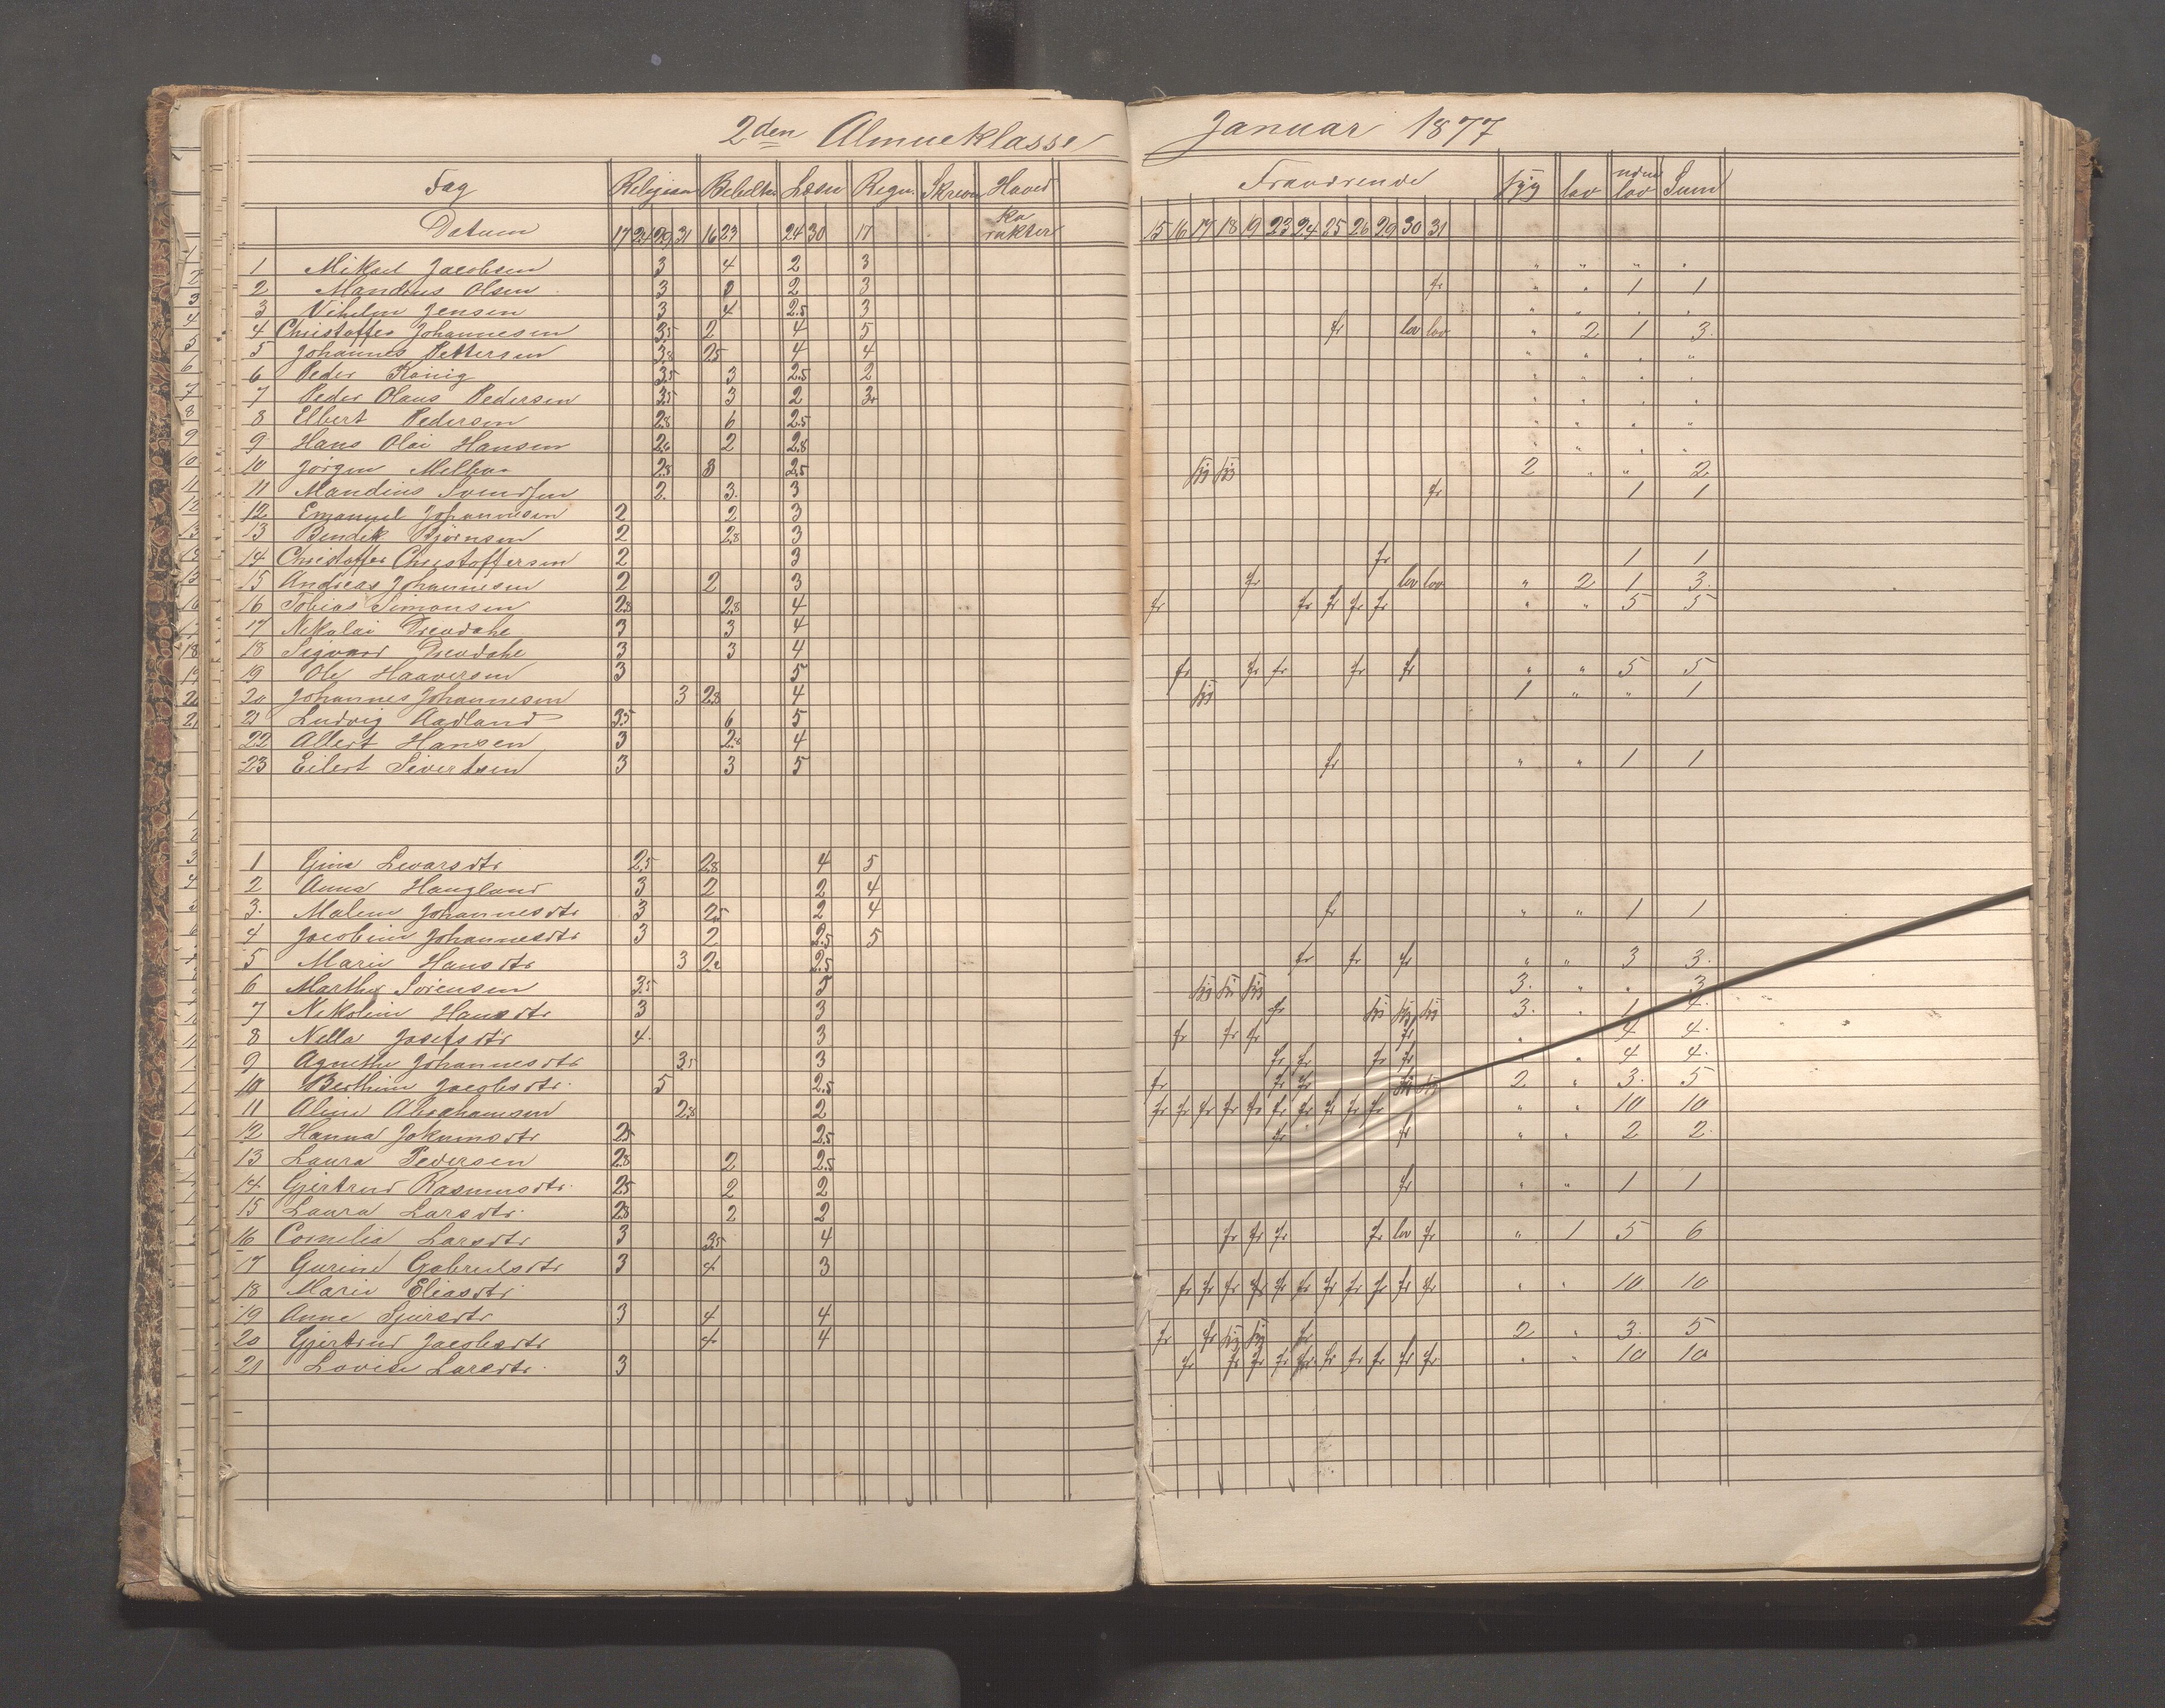 2den Almueklasse Januar 1877
Fag Religion Læsn Regn. Skrivn Hoved ka rakter Fraværende syg lov uden lov Sum
Datum 17 24 29 31 16 23 24 30 17 15 16 17 18 19 23 24 25 26 29 30 31
1 Mikael Jacobsen 3 4 2 3 " " " "
2 Mandius Olsen 3 3 2 3 fr " " 1 1
3 Vihelm Jensen 3 4 2.5 3
4 Christoffer Johannesen 3.5 2 4 5 fr lov lov " 2 1 3.
5 Johannes Pettersen 3.8 2.5 4 4 " " " "
6 Peder König 3.5 3 2.5 2
7 Peder Olaus Pedersen 3.5 3 2 3
8 Elbert Pedersen 2.8 6 2.5
9 Hans Olai Hansen 2 2.8
10 Jörgen 2.8 3 2.5 syg syg 2 " " 2
11 Mandius Svendsen 2. 3. 3 fr 1 1
12 Emanuel Johannesen 2 2 3
13 Bendik Björnsen 2 2.8 3
14 Christoffer Christoffersen 2 3 fr 1 1
15 Andreas Johannesen 2 2 3 fr lov lov " 2 1 3.
16 Tobias Simonsen 2.8 2.8 4 fr fr fr fr fr " " 5 5
17 Nikolai 3 3 4
18 Sigvard 3 3 4
19 Ole Haaversen 3 5 fr fr fr fr fr " " 5 5
20 Johannes Johannesen 3 2.8 4 syg 1 " " 1
21 Ludvig Aadland 3.5 6 5
22 Albert Hansen 3 2.8 4
23 Eilert Sivertsen 3 3 5 fr " " 1 1
1 Gina 2.5 2.8 4 5
2 Anna Haugland 3 2 2 4
3. Malene Johannesdtr 3 2.5 2 4 fr " " 1 1
4 Jacobine Johannesdtr 3 2 2.5 5
5 Marie Hansdtr 3 2.5 fr fr fr " " 3 3.
6 Marthe Sörensen 3.5 5 syg syg syg 3. " " 3
7 Nikoline Hansdtr 3 3 fr syg syg syg 3. " 1 4.
8 Nella Josefsdtr 4. 3 fr fr fr fr " " 4 4.
9 Agnethe Johannesdtr 3.5 3 fr fr fr fr " " 4 4.
10 Berthine Jacobsdtr. 5 2.5 fr fr fr syg syg 2. " 3. 5
11 Aline Abrahamsen 2.8 2 fr fr fr fr fr fr fr fr fr fr " " 10 10
12 Hanna Jokumsdtr 2.5 2.5 fr fr " " 2 2.
13 Laura Pedersen 2.8 2 2.5
14 Gjertrud Rasmusdtr. 2.5 2 2 fr " " 1 1
15 Laura Larsdtr. 2.8 2 2
16 Cornelia Larsdtr 3 3.5 4 fr fr fr fr lov fr " 1 5 6
17 Gurine Gabrielsdtr 3 4 3
18 Marie Eliasdtr fr fr fr fr fr fr fr fr fr fr fr " " 10 10
19 Anne Sjursdtr 3 4 4
20 Gjertrud Jacobsdtr 4 4 fr fr syg syg fr 2 " 3. 5
21 Lovise Larsdtr. 3 fr fr fr fr fr fr fr fr fr fr " " 10 10